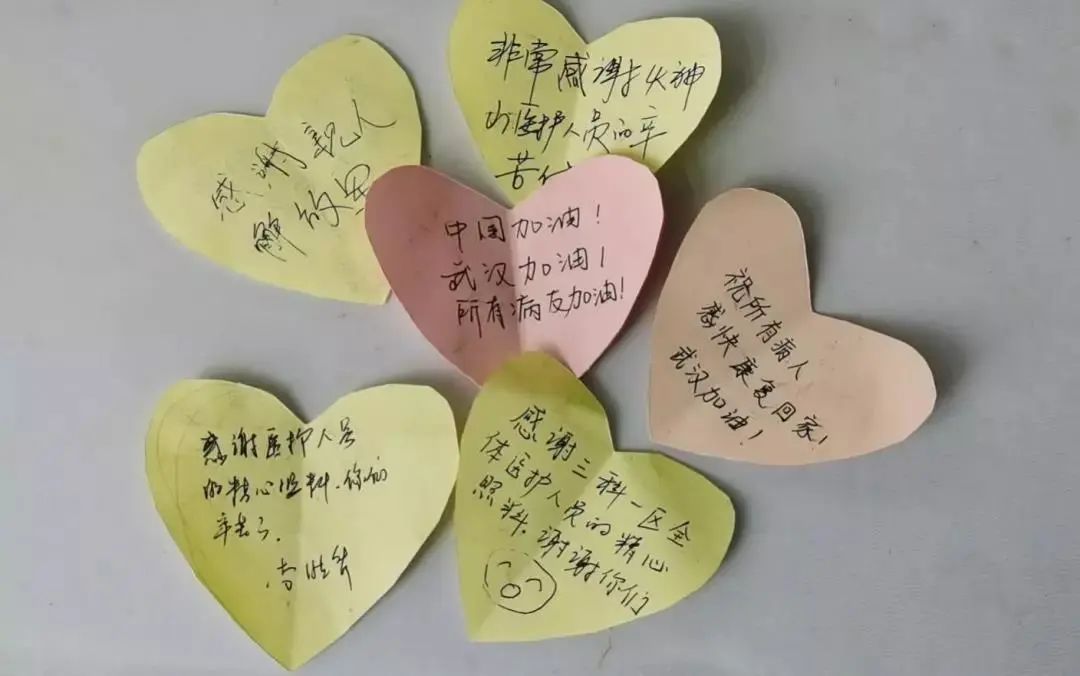 非常感谢火神
山医护人员的辛
苦
感谢亲人
解放军
中国加油!
武汉加油!
所有病友加油!
祝所有病人
感快康复回家!
武汉加油!
感谢医护人员
的精心照料.你们
辛苦了.
感谢三科一区全
体医护人员的精心
照料.谢谢你们